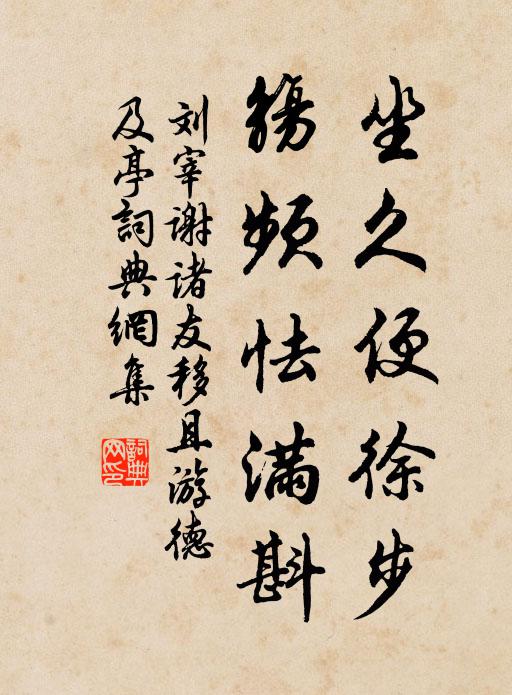 坐久便徐步
觞频怯满斟
刘宰谢诸友移具游德
及亭詞典網集
詞典
网印